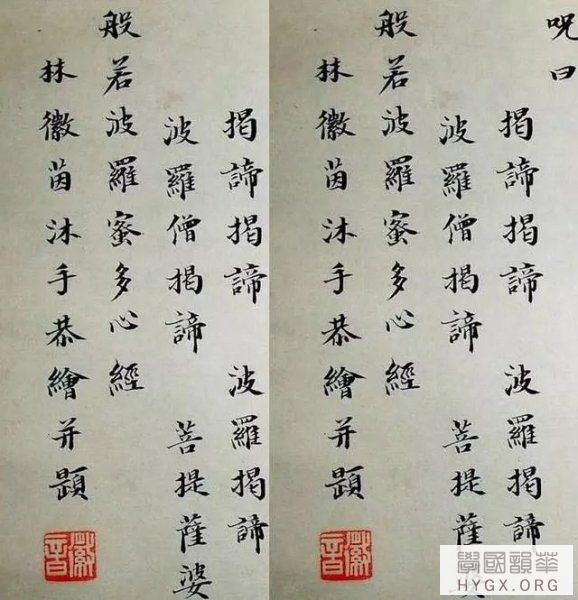 呪曰
揭諦揭諦 波羅揭諦
波羅僧揭諦 菩提薩
般若波羅蜜多心經
林徽茵沐手恭繪并題
徽音
揭諦揭諦 波羅揭諦
波羅僧揭諦 菩提薩婆
般若波羅蜜多心經
林徽茵沐手恭繪并題
徽音
華韻國學
HYGX.ORG